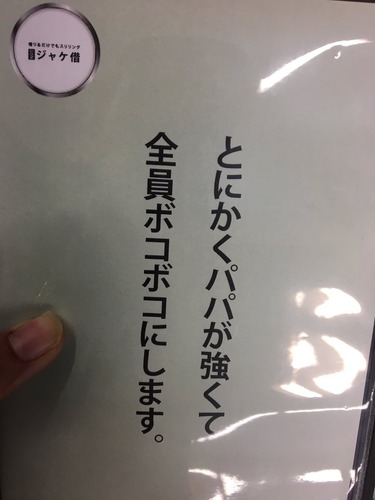 借りるだけでもスリリング
ジャケ借
とにかくパパが強くて
全員ボコボコにします。